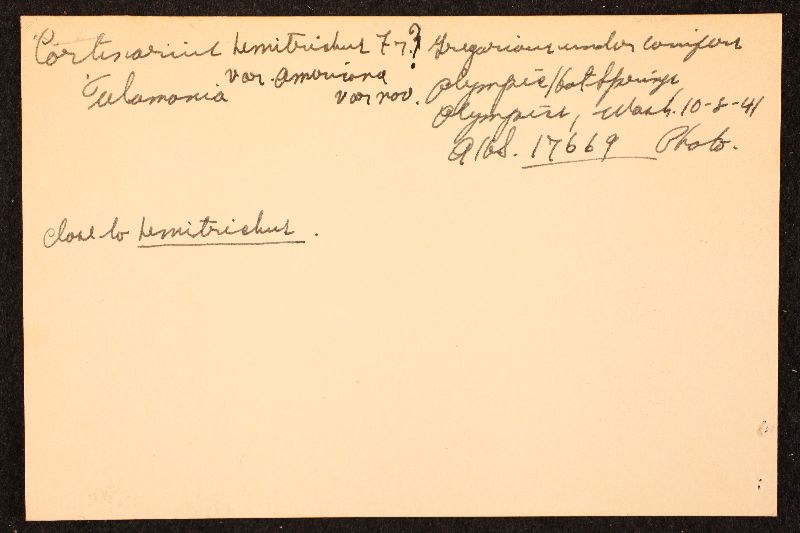 Cortinarius hemitrichus Fr.? Gregarious under conifers
Telamonia var. Americana var nov. Olympic Hot Springs
Olympics, Wash. 10-8-41
AHS. 17669 Photo.
close to hemitrichus.